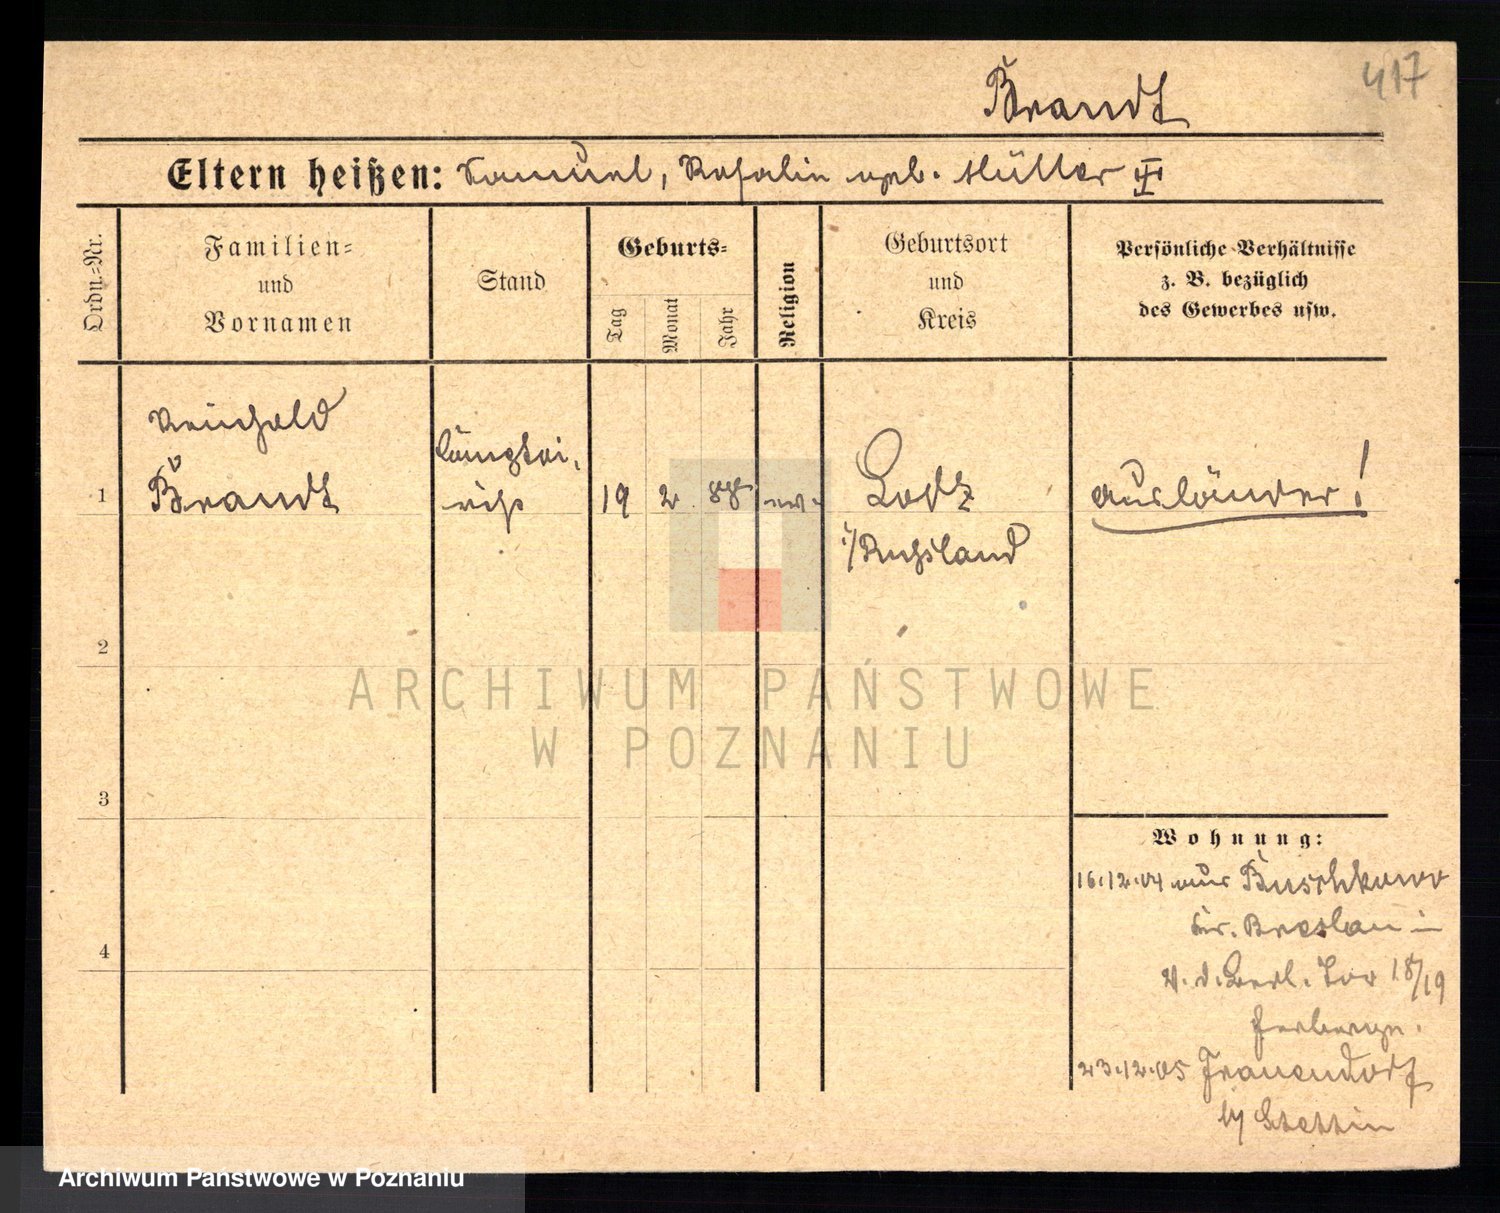 417
Brandt
Eltern heißen: Samuel, Rosalie geb. Müller III
Ordn.-Nr.
Familien-
und
Vornamen
Stand
Geburts-
Tag
Monat
Jahr
Religion
Geburtsort
und
Kreis
Persönliche Verhältnisse
z. B. bezüglich
des Gewerbes usw.
Reinhold
Brandt
1
19
2
88
ev.
Lodz
i/Russland
Ausländer!
2
ARCHIWUM PAŃSTWOWE
W POZNANIU
3
Wohnung:
16.12.04 aus Buschkowo
Kr. Breslau in
V. d. Berl. Tor 18/19
Herberge.
4
23.12.05 Frauendorf
b/ Stettin
Archiwum Państwowe w Poznaniu